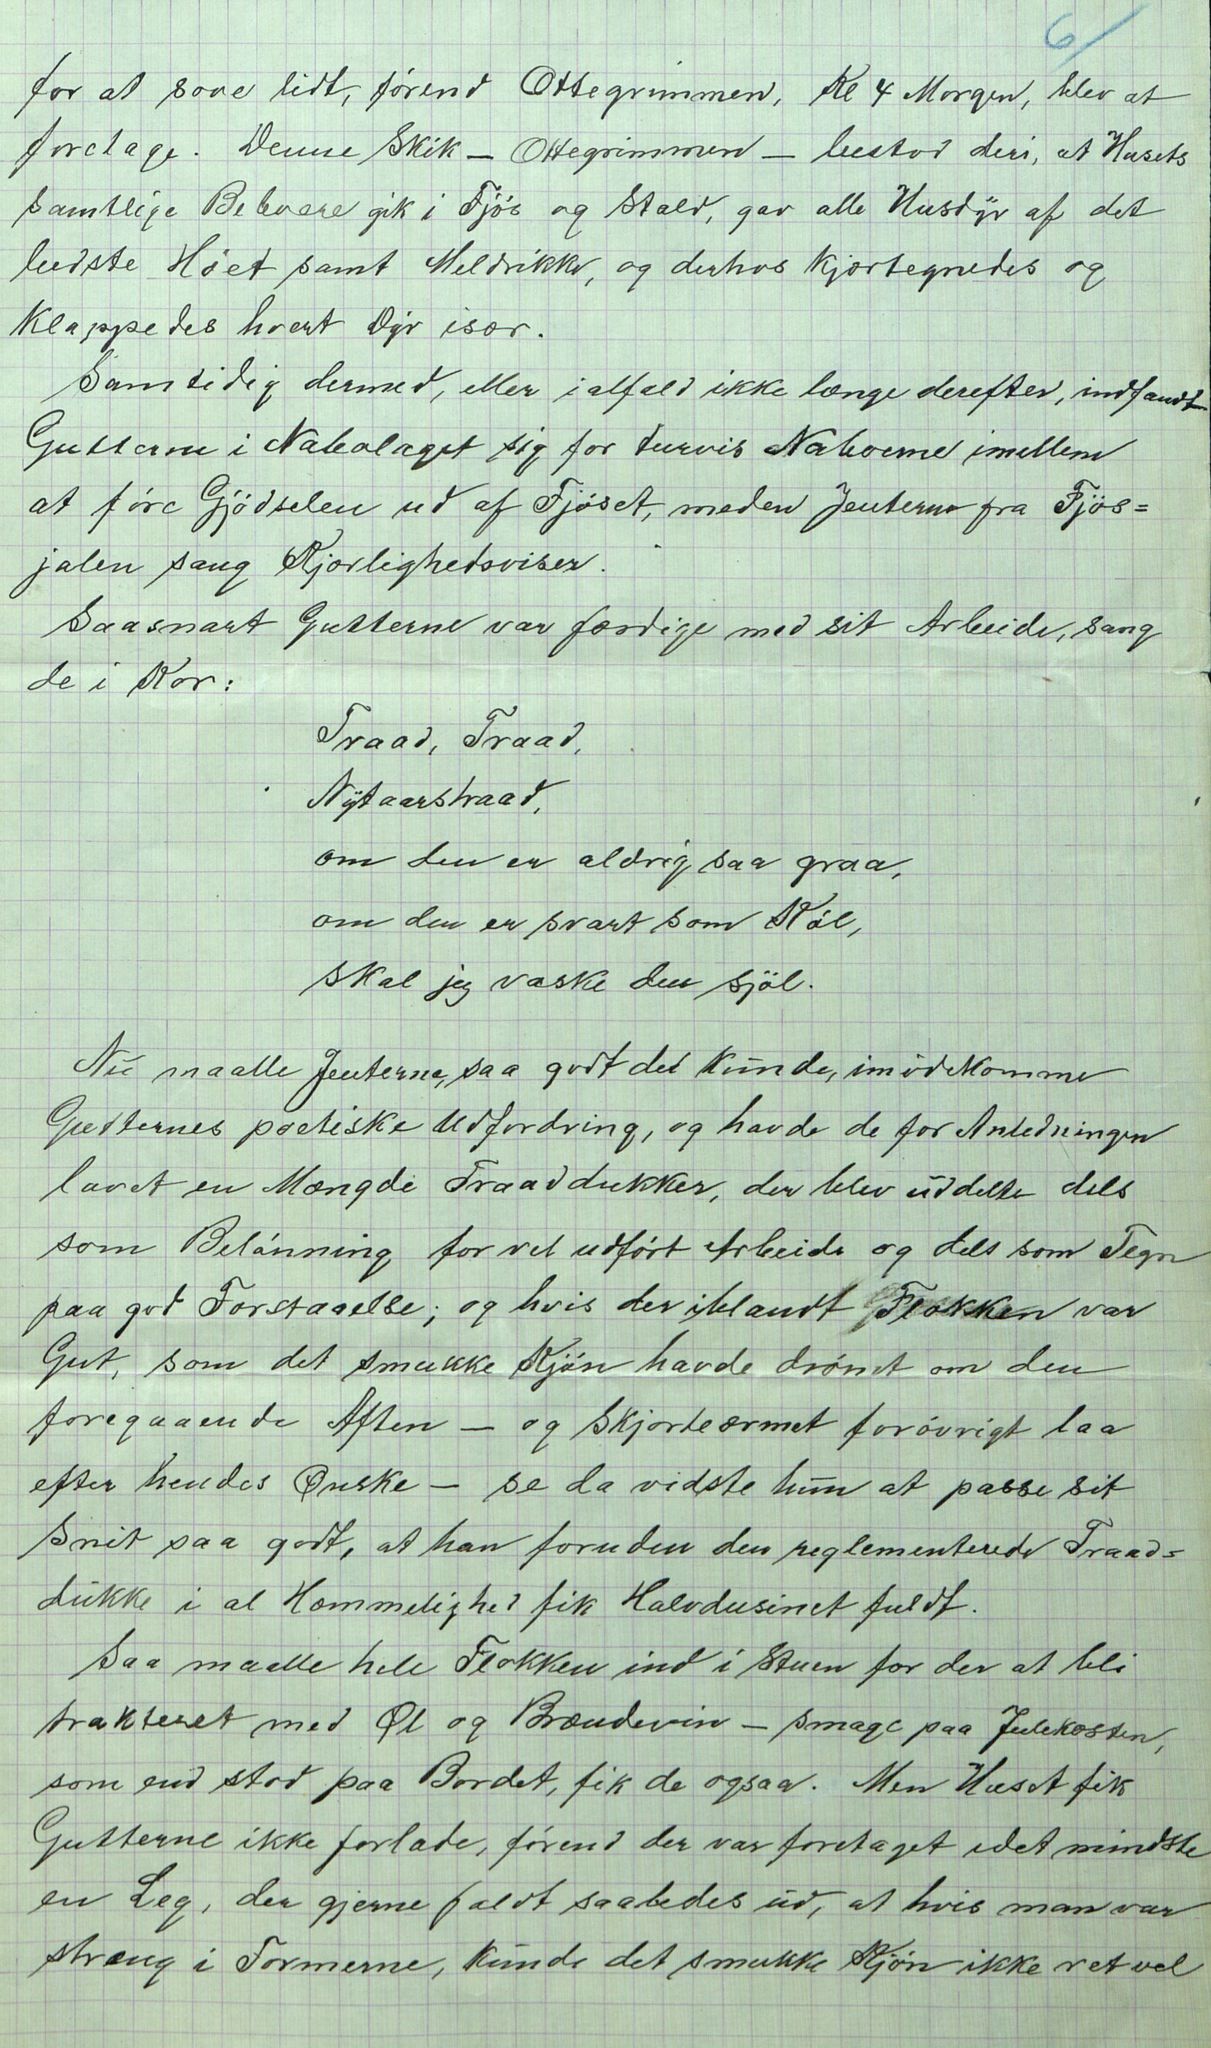 6/
for at sove lidt, førend Ottegrimmen, Kl 4 Morgen, blev at
foretage. Denne Skik — Ottegrimmen — bestod deri, at Husets
samtlige Beboere gik i Fjøs og Stald, gav alle Husdyr af det
bedste Høet samt Meldrikke, og derhos kjærtegnedes og
klappedes hvert Dyr især.
Samtidig dermed, eller ialfald ikke længe derefter, indfandt
Gutterne i Nabolaget sig for turvis Naboerne imellem
at føre Gjødselen ud af Fjøset, meden Jenterne fra Fjøs=
jalen sang Kjærlighedsviser.
Saasnart Gutterne var færdige med sit Arbeide, sang
de i Kor:
Traad, Traad,
Nytaarstraad,
om den er aldrig saa graa,
om den er svart som Køl,
skal jeg vaske den sjøl.
Nu maatte Jenterne, saa godt det kunde, imødekomme
Gutternes poetiske Udfordring, og havde de for Anledningen
lavet en Mængde Traaddukker, der blev uddelte dels
som Belønning for vel udført Arbeide og dels som Tegn
paa god Forstaaelse; og hvis der iblandt Flokken var
Gut, som det smukke Kjøn havde drømt om den
foregaaende Aften — og Skjorteærmet forøvrigt laa
efter hendes Ønske — se da vidste hun at passe sit
Snit saa godt, at han foruden den reglementerede Traad=
dukke i al Hemmelighed fik Halvdusinet fuldt.
Saa maatte hele Flokken ind i Stuen for der at bli
trakteret med Øl og Brændevin — smage paa Julekosten,
som end stod paa Bordet, fik de ogsaa. Men Huset fik
Gutterne ikke forlade, førend der var foretaget idet mindste
en Leg, der gjerne faldt saaledes ud, at hvis man var
streng i Formerne, kunde det smukke Kjøn ikke ret vel